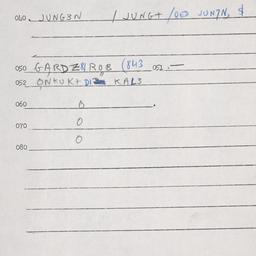 040. JUNG3N / JUNG+ /00 JUN7N, $
050 GARDZNROB (843 052.—
052 ONKUK+ DI KAL3
060 0
070 0
080 0